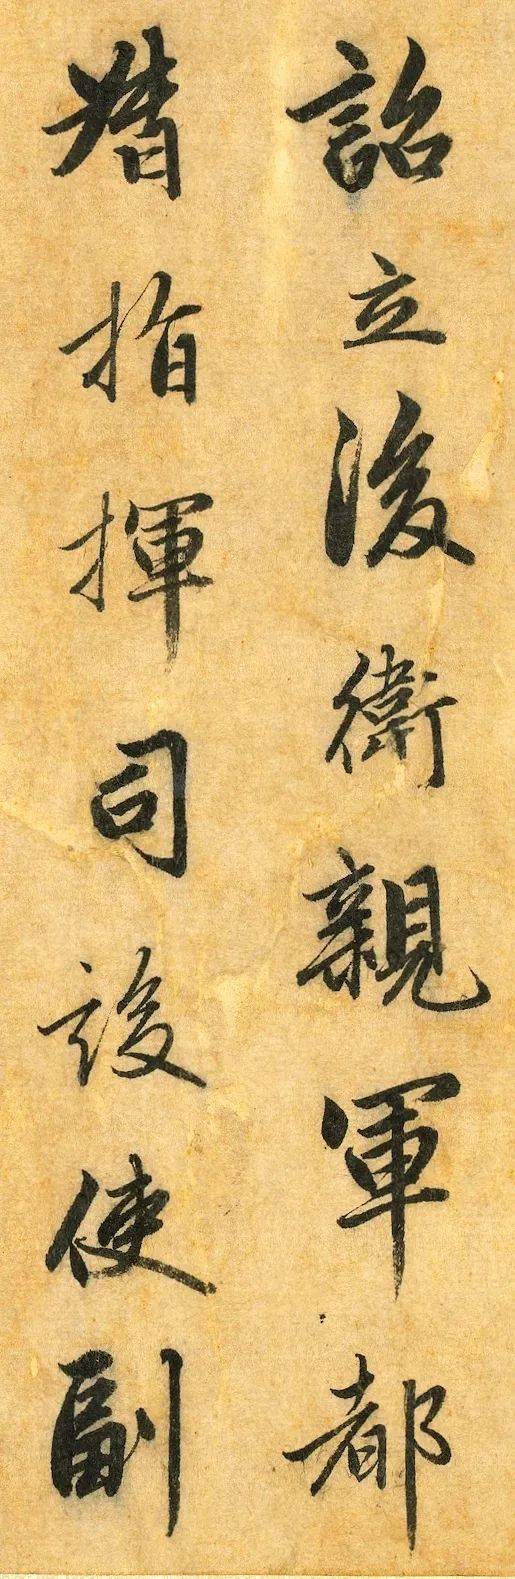 詔立後衛親軍都
督指揮司設使副